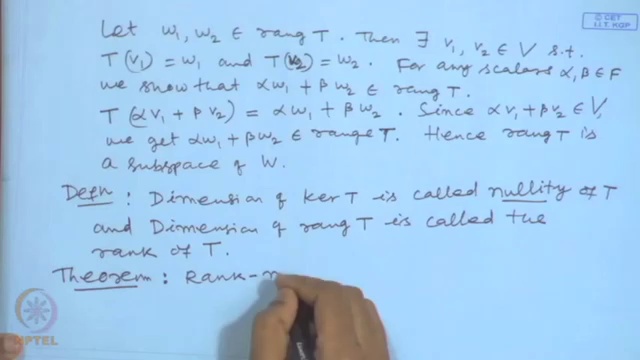 © CET
I.I.T. KGP
Let w₁, w₂ ∈ rang T. Then ∃ v₁, v₂ ∈ V s.t.
T(v₁) = w₁ and T(v₂) = w₂. For any scalars α, β ∈ F
we show that αw₁ + βw₂ ∈ rang T.
T(αv₁ + βv₂) = αw₁ + βw₂. Since αv₁ + βv₂ ∈ V,
we get αw₁ + βw₂ ∈ range T. Hence rang T is
a subspace of W.
Defn : Dimension of ker T is called nullity of T
and Dimension of rang T is called the
rank of T.
Theorem : Rank-n
NPTEL